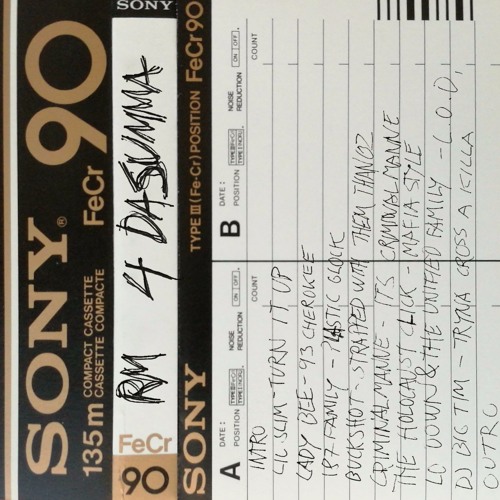 SONY
SONY®
FeCr 90
135m COMPACT CASSETTE
CASSETTE COMPACTE
FeCr
90
RM 4 DA SUMMA
SONY TYPE III (Fe-Cr) POSITION FeCr 90
A DATE:
POSITION
NOISE
REDUCTION
ON OFF
COUNT
B DATE:
POSITION
NOISE
REDUCTION
ON OFF
COUNT
INTRO
LIL SLIM - TURN IT UP
LADY BEE - 93 CHEROKEE
187 FAMILY - PLASTIC GLOCK
BUCKSHOT - STRAPPED WITH THEM THANGZ
CRIMINAL MANNE - IT'S CRIMINAL MANNE
THE HOLOCAUST CLICK - MAFIA STYLE
LO DOWN & THE UNTIFIED FAMILY - L.O.D.
DJ BIG TIM - TRYNA CROSS A KILLA
OUTRO